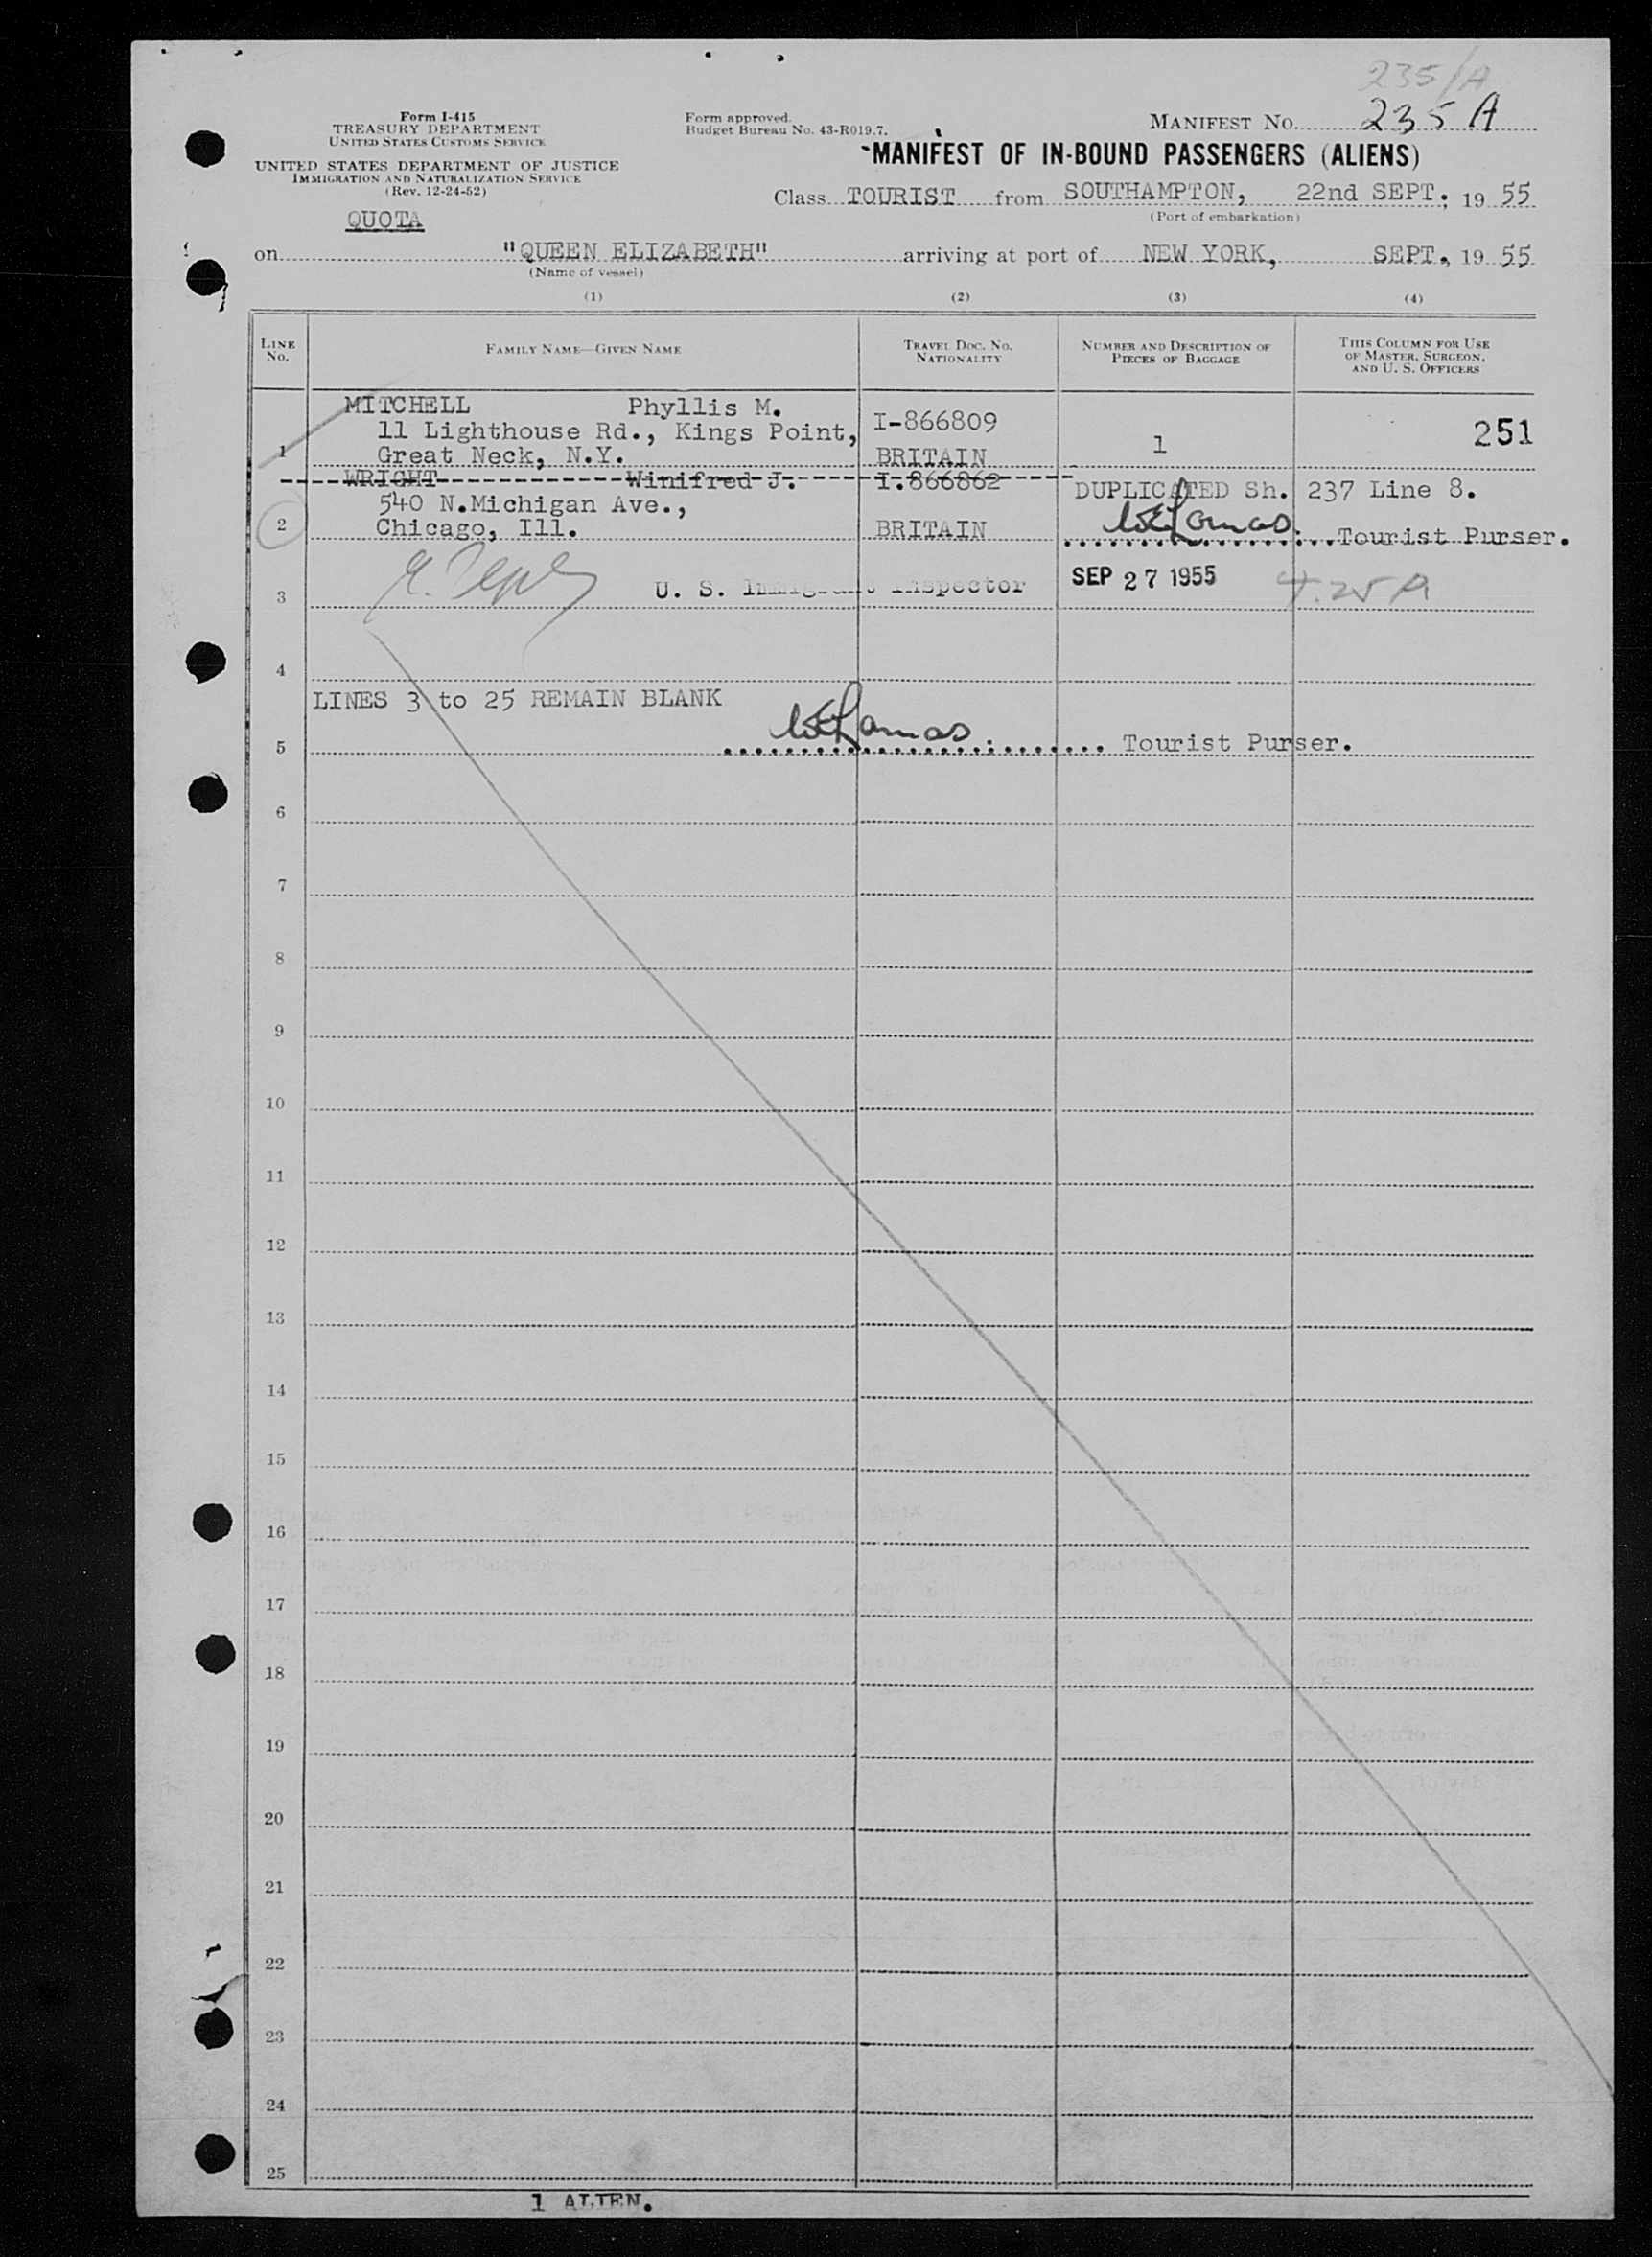 235/A
Form I-415
TREASURY DEPARTMENT
UNITED STATES CUSTOMS SERVICE
UNITED STATES DEPARTMENT OF JUSTICE
IMMIGRATION AND NATURALIZATION SERVICE
(Rev. 12-24-52)
QUOTA
Form approved.
Budget Bureau No. 43-R019.7.
MANIFEST NO. 235 A
MANIFEST OF IN-BOUND PASSENGERS (ALIENS)
Class TOURIST from SOUTHAMPTON, 22nd SEPT. 19 55
(Port of embarkation)
on "QUEEN ELIZABETH" arriving at port of NEW YORK, SEPT. 19 55
(Name of vessel)
(1) (2) (3) (4)
LINE NO. FAMILY NAME—GIVEN NAME TRAVEL DOC. NO. NATIONALITY NUMBER AND DESCRIPTION OF PIECES OF BAGGAGE THIS COLUMN FOR USE OF MASTER, SURGEON, AND U. S. OFFICERS
MITCHELL Phyllis M.
11 Lighthouse Rd., Kings Point, I-866809
1 Great Neck, N.Y. BRITAIN 1 251
WRIGHT Winifred J. I.866862
540 N.Michigan Ave., DUPLICATED Sh. 237 Line 8.
2 Chicago, Ill. BRITAIN Tourist Purser.
3 U. S. Immigrant Inspector SEP 27 1955 4.25 A
4
LINES 3 to 25 REMAIN BLANK
5 Tourist Purser.
6
7
8
9
10
11
12
13
14
15
16
17
18
19
20
21
22
23
24
25
1 ALIEN.